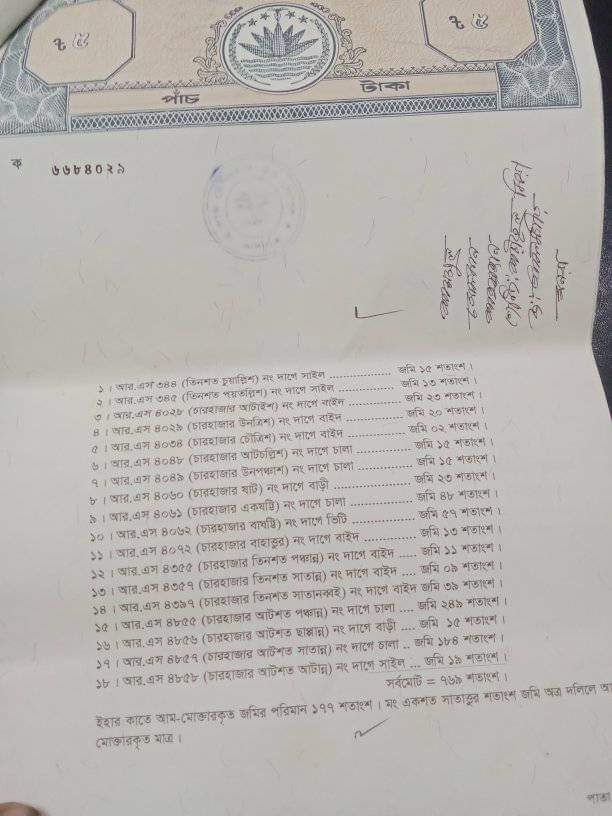 ৳ ৫
৳ ৫
পাঁচ টাকা
ক ৬৬৮৪০২৯
১। আর.এস ৩৪৪ (তিনশত চুয়াল্লিশ) নং দাগে সাইল ............... জমি ১৫ শতাংশ।
২। আর.এস ৩৪৫ (তিনশত পয়তাল্লিশ) নং দাগে সাইল ............... জমি ১৩ শতাংশ।
৩। আর.এস ৪০২৮ (চারহাজার আটাইশ) নং দাগে বাইদ ............... জমি ২৩ শতাংশ।
৪। আর.এস ৪০২৯ (চারহাজার উনত্রিশ) নং দাগে বাইদ ............... জমি ২০ শতাংশ।
৫। আর.এস ৪০৩৪ (চারহাজার চৌত্রিশ) নং দাগে বাইদ ............... জমি ০২ শতাংশ।
৬। আর.এস ৪০৪৮ (চারহাজার আটচল্লিশ) নং দাগে চালা ............... জমি ১৫ শতাংশ।
৭। আর.এস ৪০৪৯ (চারহাজার উনপঞ্চাশ) নং দাগে চালা ............... জমি ১৫ শতাংশ।
৮। আর.এস ৪০৬০ (চারহাজার ষাট) নং দাগে বাড়ী ............... জমি ২৩ শতাংশ।
৯। আর.এস ৪০৬১ (চারহাজার একষট্টি) নং দাগে চালা ............... জমি ৪৮ শতাংশ।
১০। আর.এস ৪০৬২ (চারহাজার বাষট্টি) নং দাগে ভিটি ............... জমি ৫৭ শতাংশ।
১১। আর.এস ৪০৭২ (চারহাজার বাহাত্তুর) নং দাগে বাইদ ............... জমি ১৩ শতাংশ।
১২। আর.এস ৪৩৫৫ (চারহাজার তিনশত পঞ্চান্ন) নং দাগে বাইদ .... জমি ১১ শতাংশ।
১৩। আর.এস ৪৩৫৭ (চারহাজার তিনশত সাতান্ন) নং দাগে বাইদ .... জমি ০৯ শতাংশ।
১৪। আর.এস ৪৩৯৭ (চারহাজার তিনশত সাতানব্বই) নং দাগে বাইদ জমি ৩৯ শতাংশ।
১৫। আর.এস ৪৮৫৫ (চারহাজার আটশত পঞ্চান্ন) নং দাগে চালা .... জমি ২৪৯ শতাংশ।
১৬। আর.এস ৪৮৫৬ (চারহাজার আটশত ছাপ্পান্ন) নং দাগে বাড়ী .... জমি ১৫ শতাংশ।
১৭। আর.এস ৪৮৫৭ (চারহাজার আটশত সাতান্ন) নং দাগে চালা .. জমি ১৮৪ শতাংশ।
১৮। আর.এস ৪৮৫৮ (চারহাজার আটশত আটান্ন) নং দাগে সাইল ... জমি ১৯ শতাংশ।
সর্বমোট = ৭৬৯ শতাংশ।
ইহার কাতে আম-মোক্তারকৃত জমির পরিমান ১৭৭ শতাংশ। মং একশত সাতাত্তুর শতাংশ জমি অত্র দলিলে আ
মোক্তারকৃত মাত্র।
পাতা